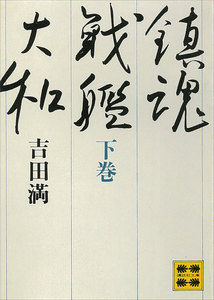 鎮魂
戦艦
大和
下巻
吉田満
講談社文庫